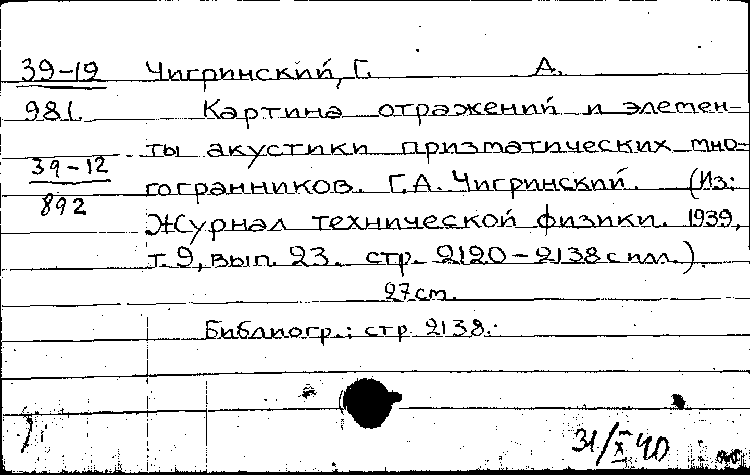 39-19 Чигринский, Г. А.
981. Картина отражений и элемен-
ты акустики призматических мно-
39-12
гогранников. Г.А. Чигринский. (Из:
892
Журнал технической физики. 1939,
т. 9, вып. 23. стр. 2120-2138 с илл.)
27 см.
Библиогр.: стр. 2138.
31/X 40